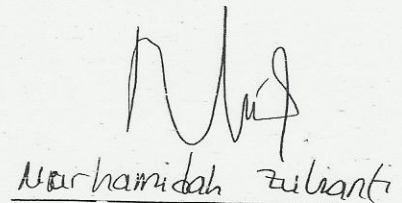 Nurhamidah Zulianti